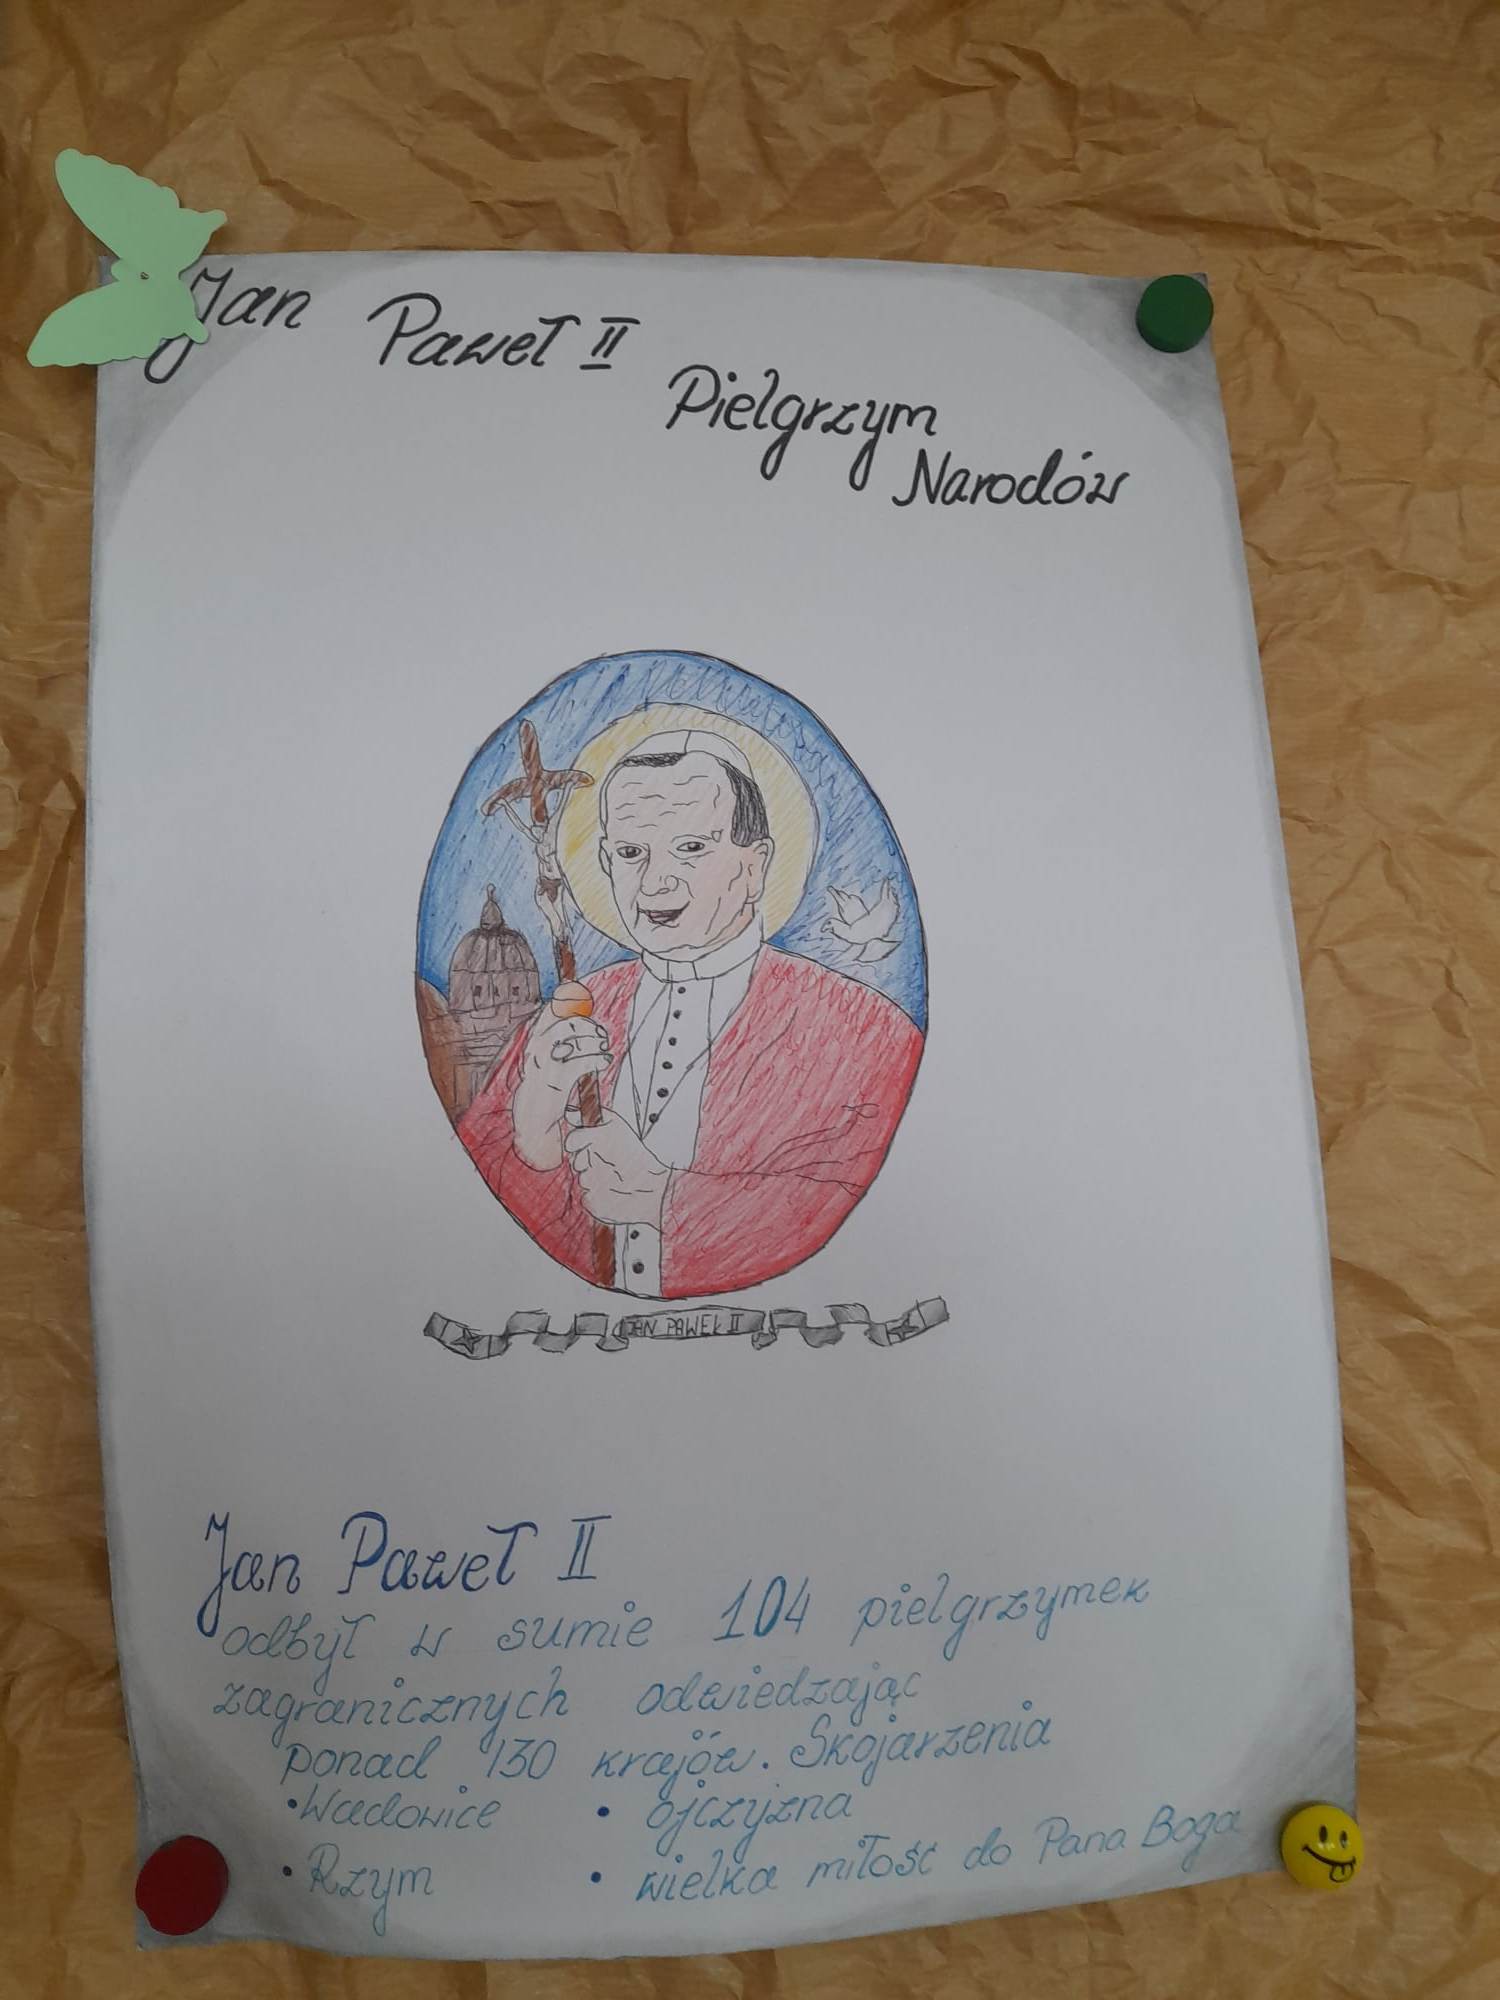 Jan Paweł II
Pielgrzym
Narodów
JAN PAWEŁ II
Jan Paweł II
odbył w sumie 104 pielgrzymek
zagranicznych odwiedzając
ponad 130 krajów. Skojarzenia
• Wadowice • ojczyzna
• Rzym • wielka miłość do Pana Boga